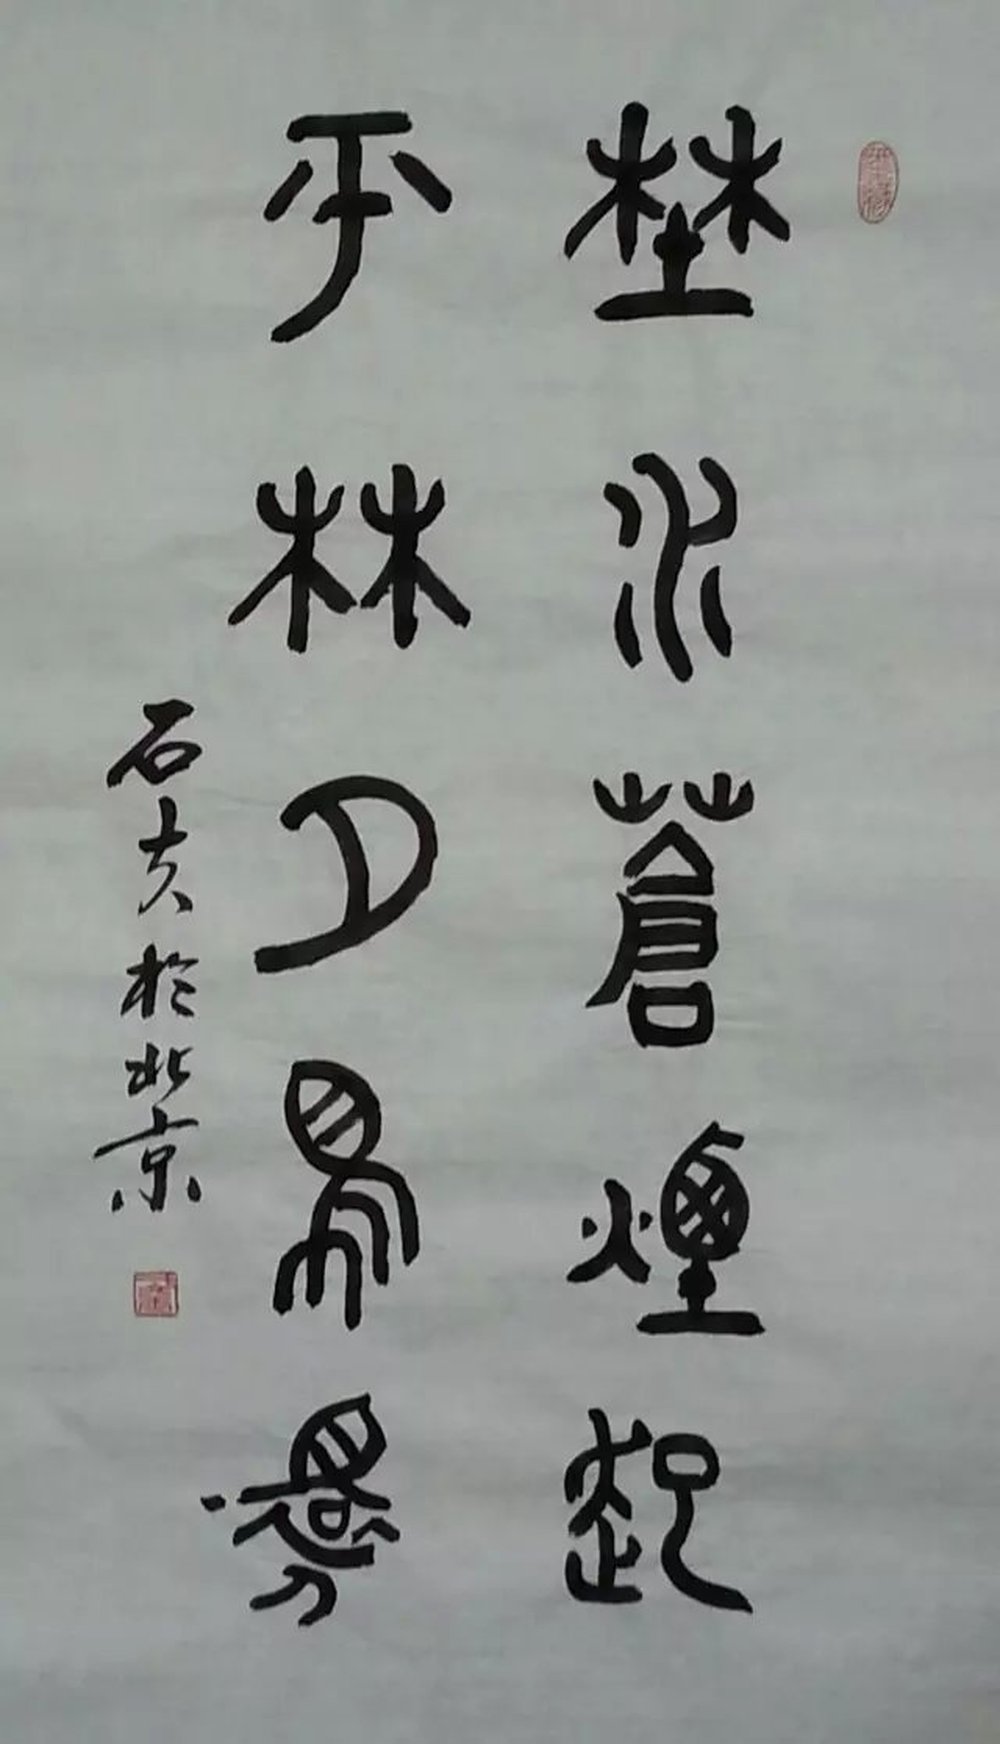 埜水蒼煙起
平林夕鳥還
石夫於北京